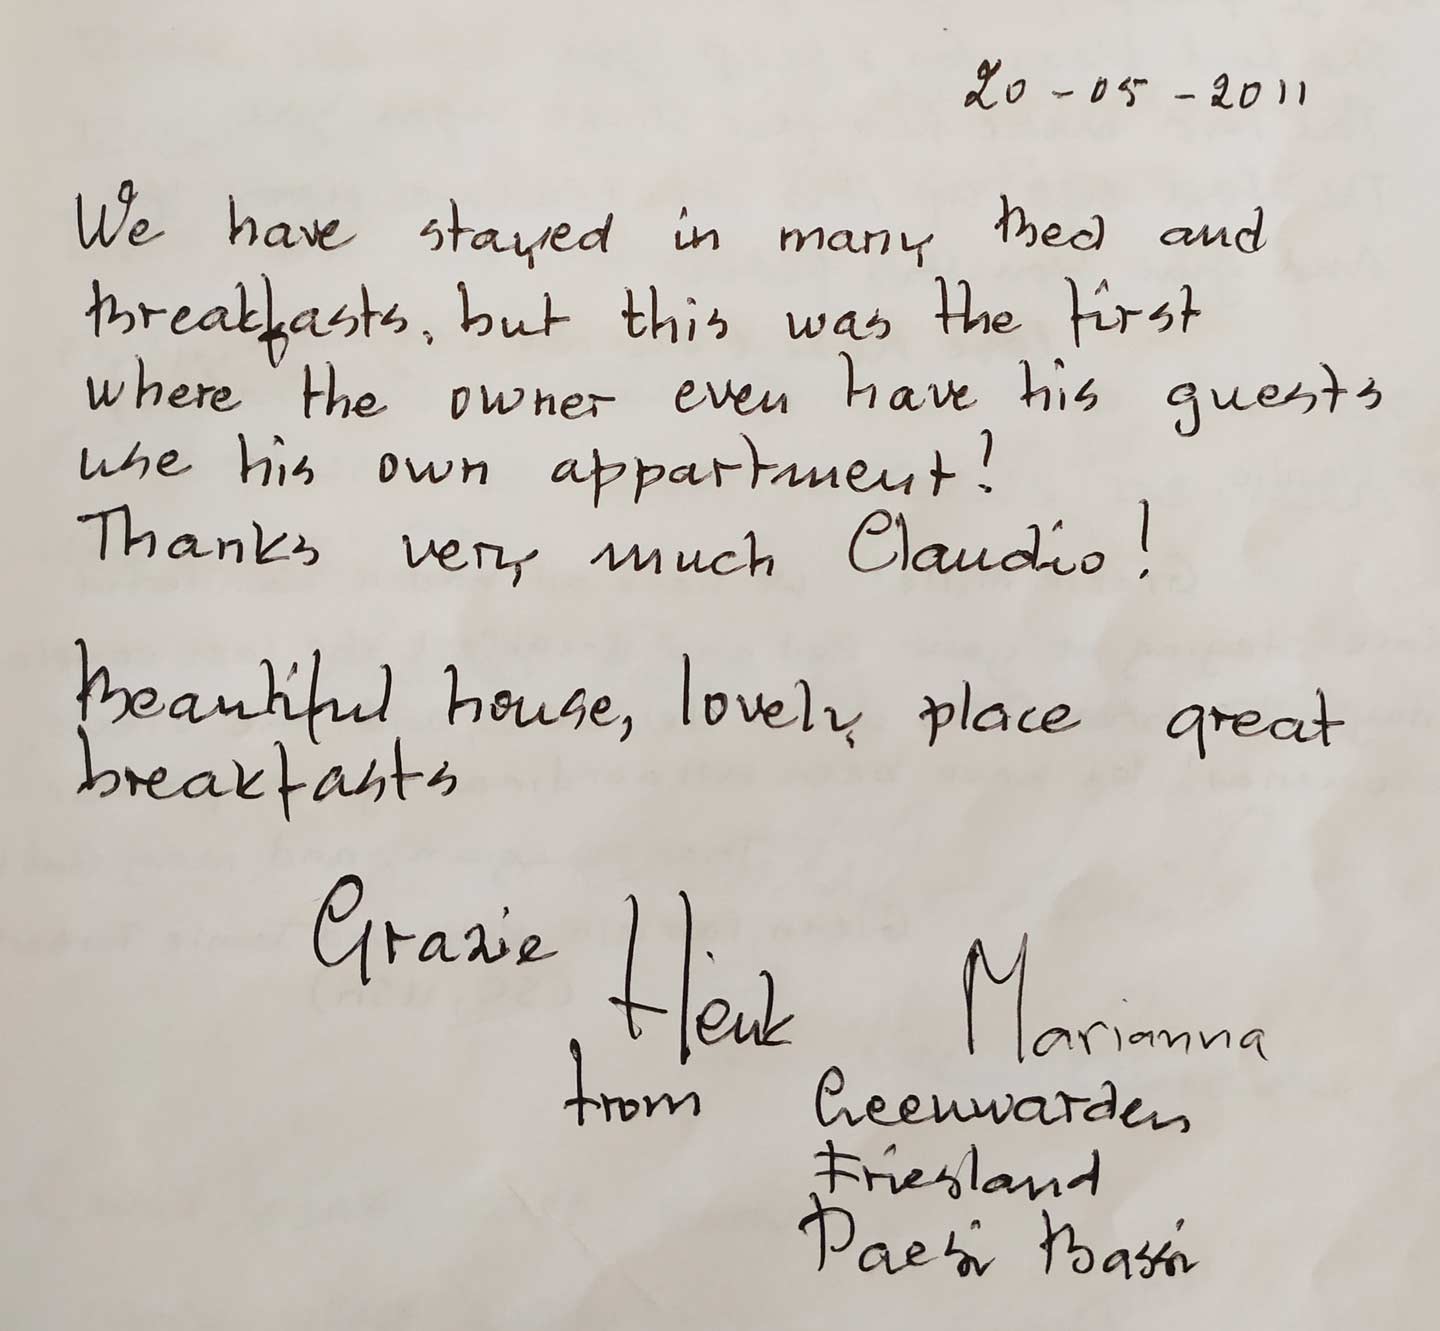 20-05-2011
We have stayed in many Bed and
Breakfasts, but this was the first
where the owner even have his guests
use his own appartment!
Thanks very much Claudio!
Beautiful house, lovely place great
breakfasts
Grazie Henk Marianna
from Leeuwarden
Friesland
Paesi Bassi